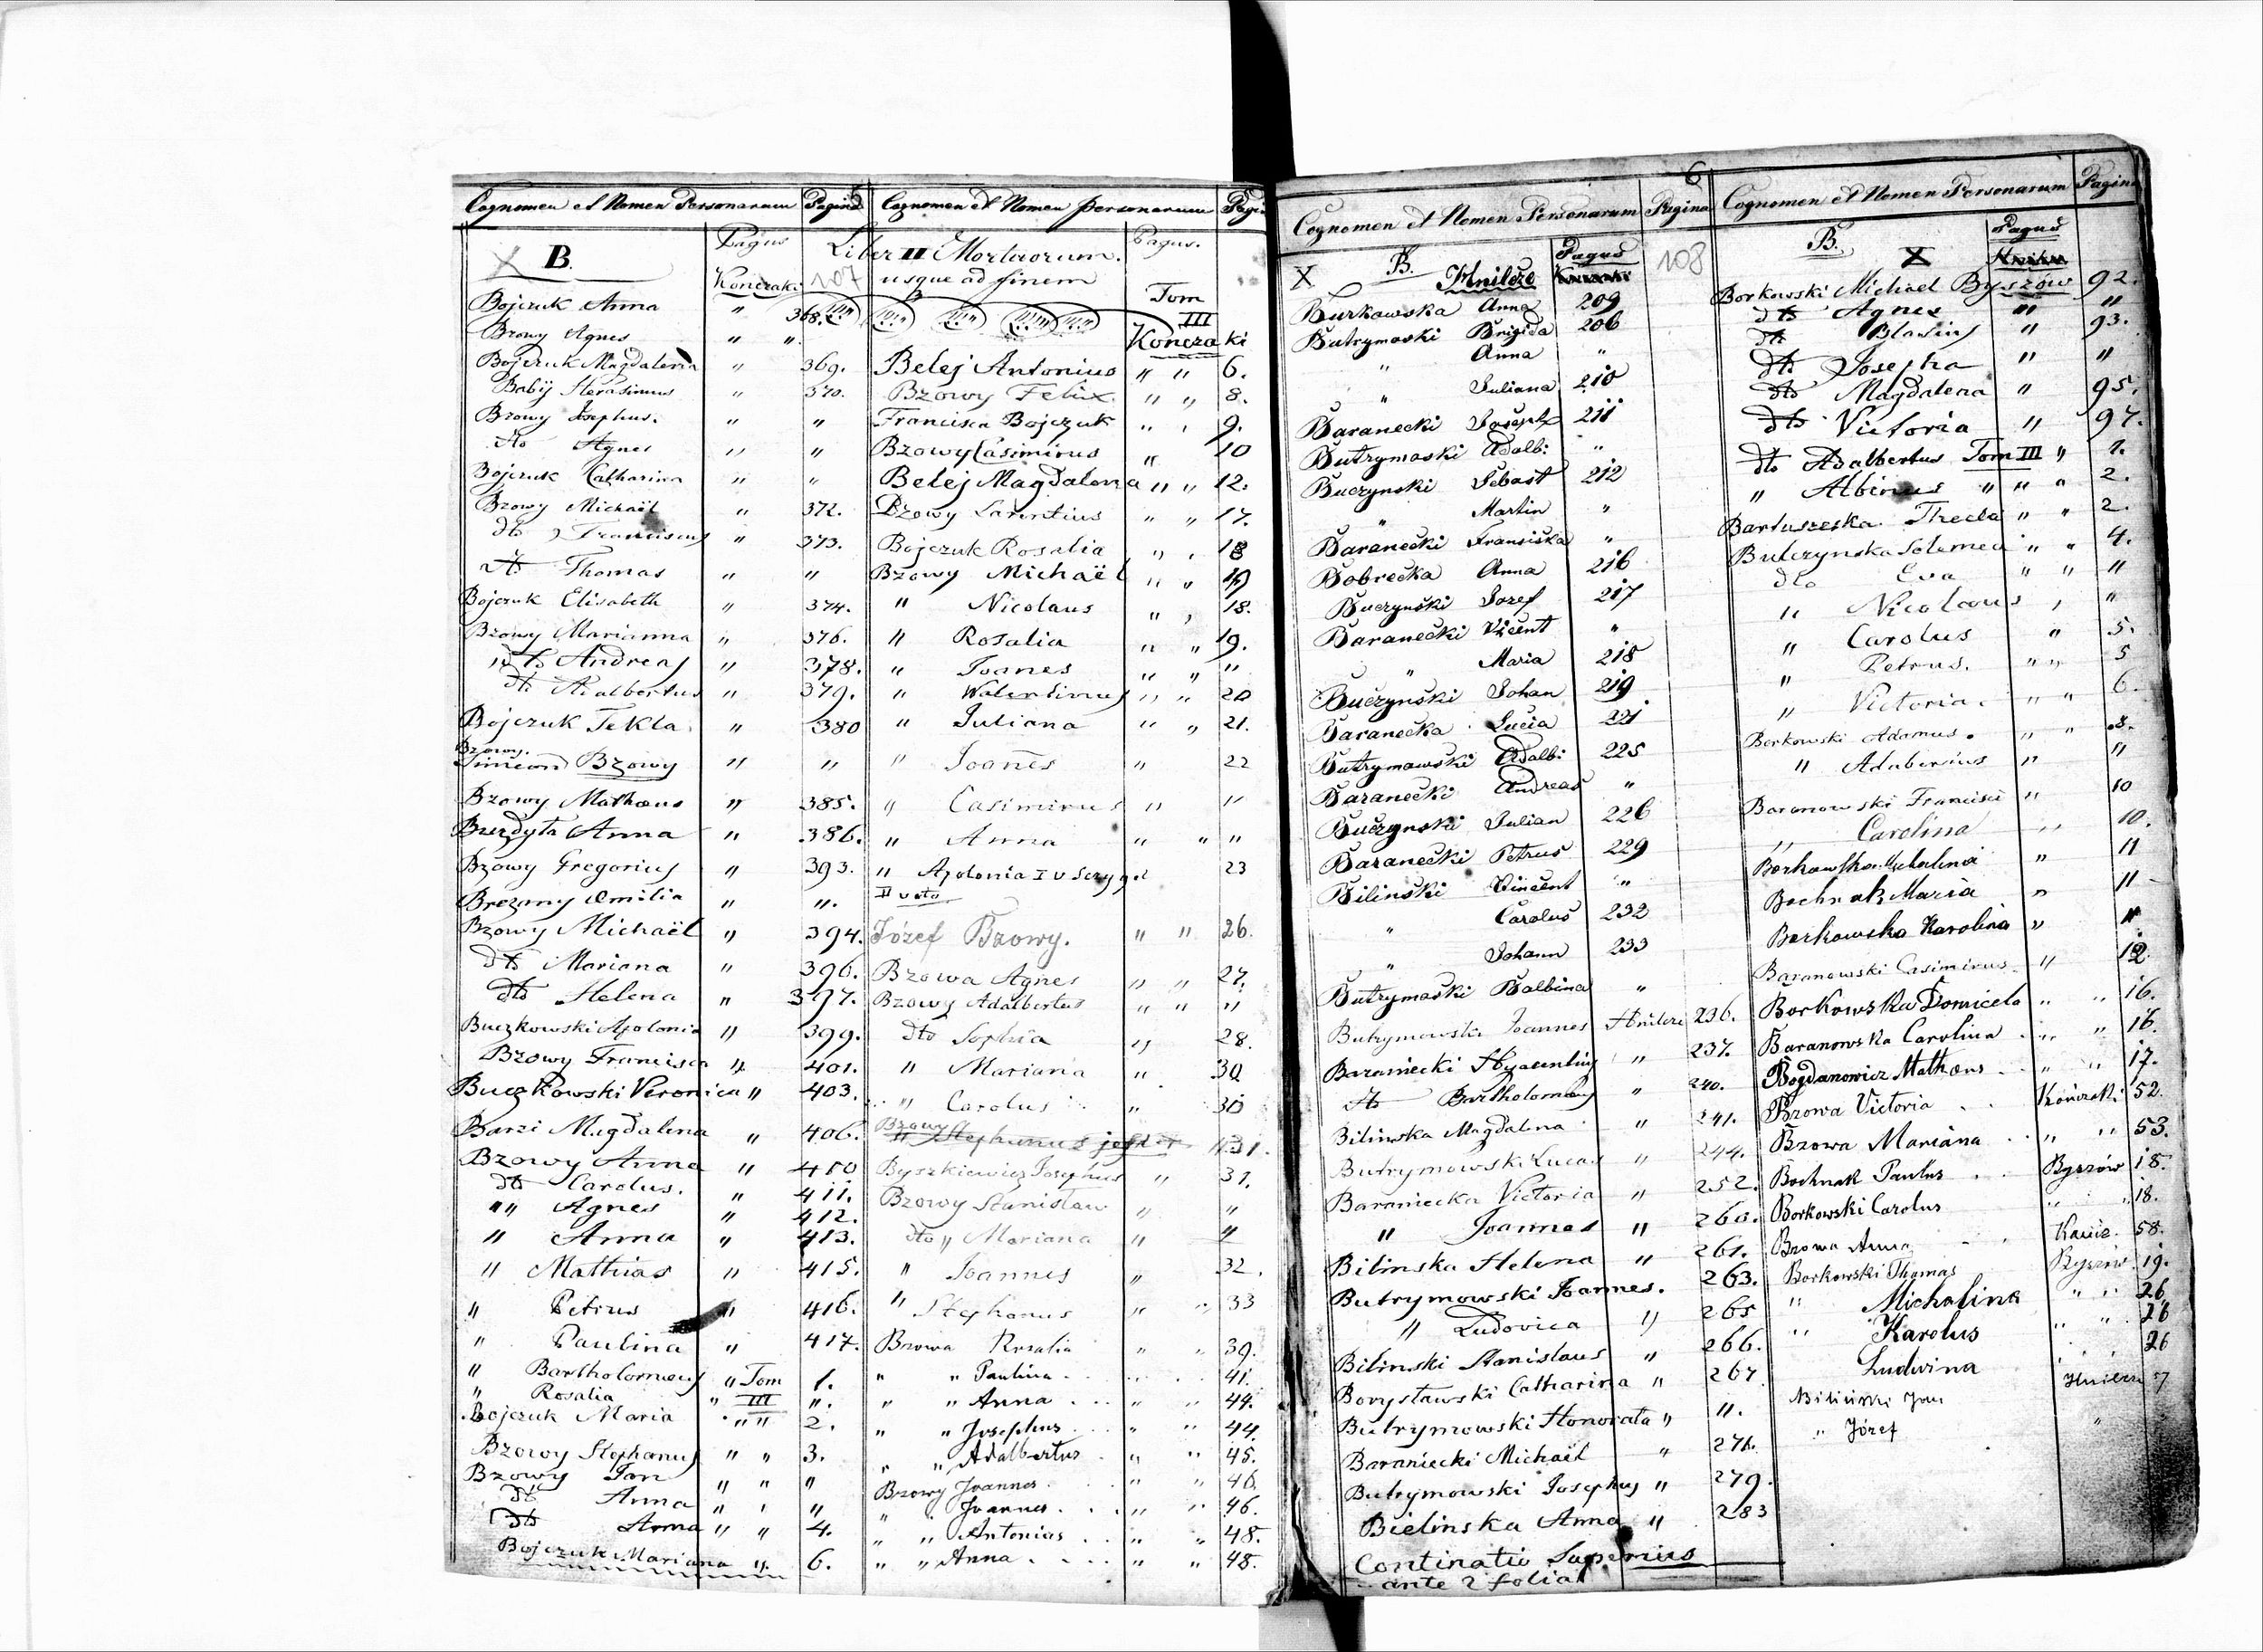 Cognomen et Nomen Personarum Pagina
X B. Pagus
Konczaki
Bojczuk Anna " 368.
Bzowy Agnes " "
Bojczuk Magdalena " 369.
Babij Herasimus " 370.
Bzowy Josephus. " "
dto Agnes " "
Bojczuk Catharina " "
Bzowy Michaël " 372.
dto Franciscus " 373.
dto Thomas " "
Bojczuk Elisabeth " 374.
Bzowy Marianna " 376.
dto Andreas " 378.
dto Adalbertus " 379.
Bojczuk Tekla " 380
Bzowy.
Simeon Bzowy " "
Bzowy Mathæus " 385.
Anna " 386.
Bzowy Gregorius " 393.
Brezany Emilia " "
Bzowy Michaël " 394.
dto Mariana " 396.
dto Helena " 397.
Buczkowski Apolonia " 399.
Bzowy Francisca " 401.
Buczkowski Veronica " 403.
Barzi Magdalena " 406.
Bzowy Anna " 410
dto Carolus. " 411.
" Agnes " 412.
" Anna " 413.
" Mathias " 415.
" Petrus " 416.
" Paulina " 417.
" Bartholomeus " Tom 1.
" Rosalia " III "
Bojczuk Maria " " 2.
Bzowy Stephanus " " 3.
Bzowy Jan " " "
dto Anna " " "
dto Anna " " 4.
Bojczuk Mariana " 6.
Cognomen et Nomen personarum
Liber II Mortuorum. Pagus.
107 usque ad finem
Tom
III
Konczaki
Belej Antonius " " 6.
Bzowy Felix " " 8.
Francisca Bojczuk " " 9.
Bzowy Casimirus " 10
Belej Magdalena " " 12.
Bzowy Larentius " " 17.
Bojczuk Rosalia " " 18
Bzowy Michaël " "
" Nicolaus " " 18.
" Rosalia " " 19.
" Joanes " " "
" Walentinus " " 20
" Juliana " " 21.
" Joanes " 22
" Casimirus " "
" Anna " " "
" Apolonia I v 23
II voto
Józef Bzowy. " " 26.
Bzowa Agnes " " 27.
Bzowy Adalbertus " " "
dto Sophia " 28.
" Mariana " 30
" Carolus " 30
Bzowy
" Stephanus 31.
Byszkiewicz Josephus " 31.
Bzowy Stanislaw " "
dto " Mariana " "
" Joannes " 32.
" Stephanus " " 33
Bzowa Rosalia " " 39.
" " Paulina " " 41.
" " Anna " " 44.
" " Josephus " " 44.
" " Adalbertus " " 45.
Bzowy Joannes " " 46.
" " Joannes " " 46.
" " Antonias " " 48.
" " Anna " " 48.
6
Cognomen et Nomen Personarum Pagina
X B. Pagus 108
Hnilcze
Burkowska Anna 209
Butrymoski Brigida 206
" Anna "
" Juliana 210
Baranecki Joseph 211
Butrymoski Adalb: "
Buczynski Sebast 212
" Martin "
Baranecki Fransiska "
Bobrecka Anna 216
Buczynski Jozef 217
Baranecki Vicent "
" Maria 218
Buczynski Johan 219
Baranecka Lucia 221
Butrymowski Adalb: 225
Baranecki Andreas "
Buczynski Julian 226
Baranecki Petrus 229
Bilinski Vincent "
" Carolus 232
" Johann 233
Butrymoski Balbina "
Butrymowski Joannes Hnilcze 236.
Baraniecki Hyacenthus " 237.
dto Bartholomeus " 240.
Bilinska Magdalena " 241.
Butrymowski Lucas " 244.
Baraniecka Victoria " 252.
" Joannes " 260.
Bilinska Helena " 261.
Butrymowski Joannes. 263.
" Ludovica " 265
Bilinski Stanislaus " 266.
Borysławski Catharina " 267
Butrymowski Honorata " "
Baraniecki Michaël " 276.
Butrymowski Josephus " 279.
Bielinska Anna " 283
Continatio Superius
ante 2 folia
Cognomen et Nomen Personarum Pagina
B. X Pagus
Borkowski Michael Byszów 92.
dto Agnes " "
dto Blasius " 93.
dto Josepha " "
dto Magdalena " 95.
dto Victoria " 97.
dto Adalbertus Tom III " 1.
" Albinus " " " 2.
Bartuszeska Thecla " " 2.
Bulczynska Solomea " " 4.
dto Eva " " "
" Nicolaus " "
" Carolus " 5.
" Petrus. " " 5
" Victoria. " " 6.
Borkowski Adamus. " " 8.
" Adaberius " "
Baranowski Francisci " 10
" Carolina " 10.
Borkowska " 11
Bochnak Maria " 11
Borkowska Karolina " "
Baranowski Casimirus " 12.
Borkowska Domicela " " 16.
Baranowska Carolina " " 16.
Bogdanowicz Mathæus " " 17.
Bzowa Victoria Kończaki 52.
Bzowa Mariana " " 53.
Bochnak Paulus Byszów 18.
Borkowski Carolus " " 18.
Bzowa Anna 58.
Borkowski Thomas Byszów 19.
" Michalina " " 26
" Karolus " " 26
Ludwina 26
Biliński Jan Hnilcze 57
" Józef "